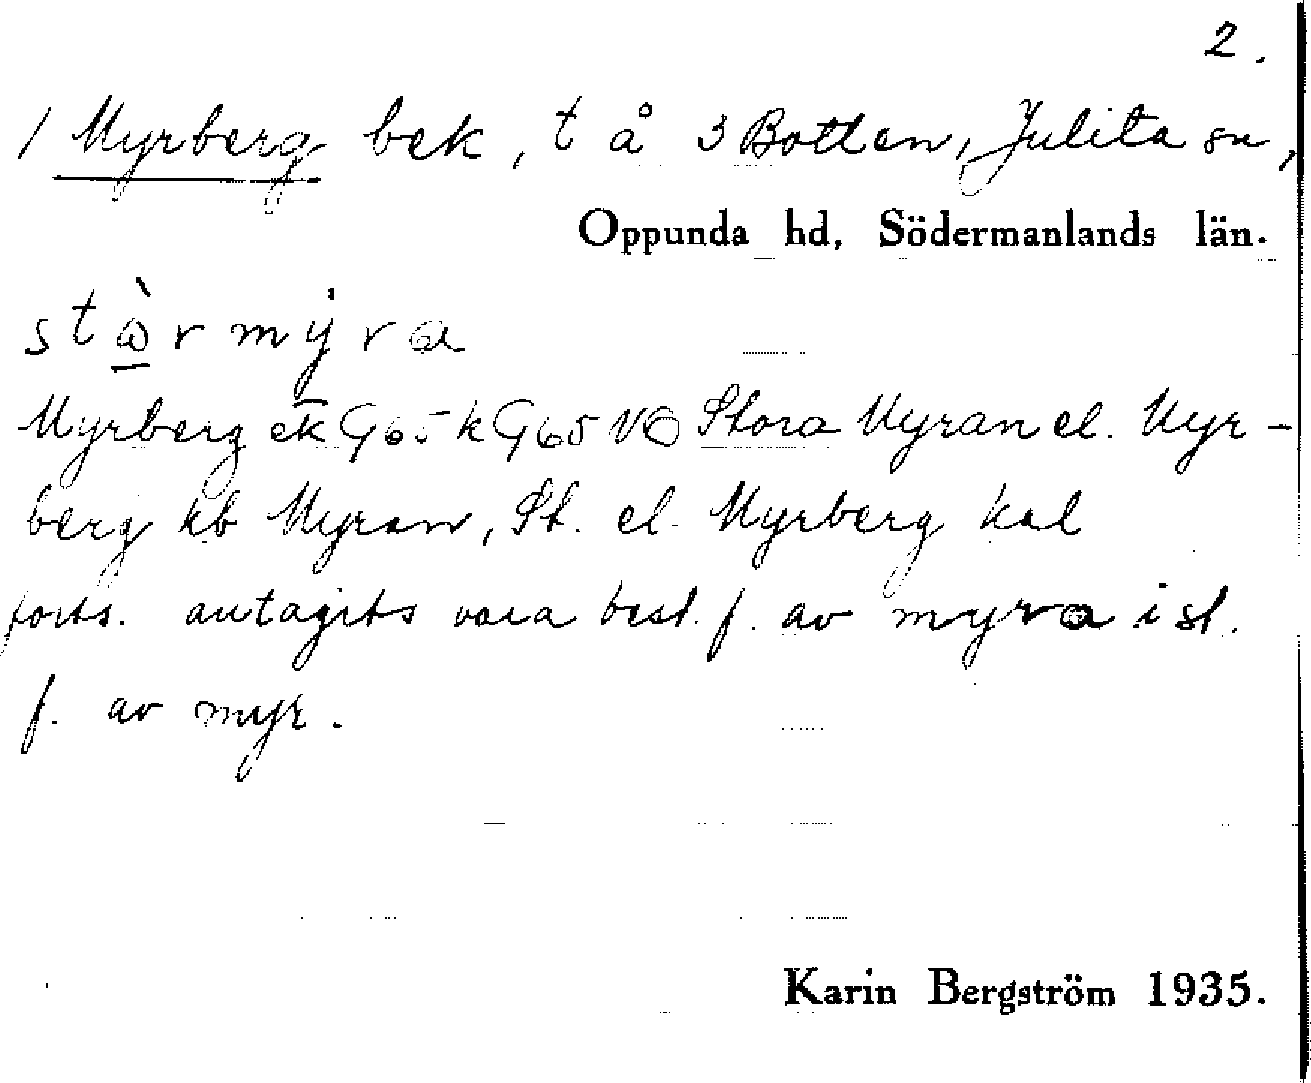 2.
1 Myrberg bek, t å 3 Botten, Julita sn,
Oppunda hd, Södermanlands län.
stɷ̀rmẏra
Myrberg ek G65 k G65 NO Stora Myran el. Myr-
berg hb Myran, St. el. Myrberg kal
forts. antagits vara best. f. av myra i st.
f. av myr.
Karin Bergström 1935.